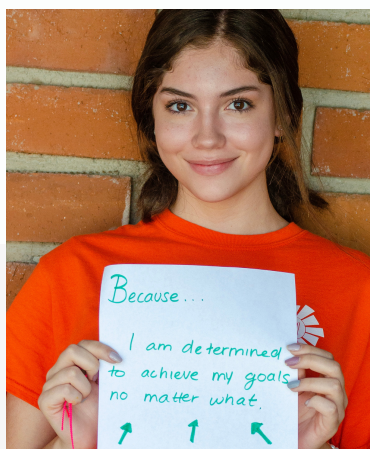 Because...
I am determined
to achieve my goals
no matter what.